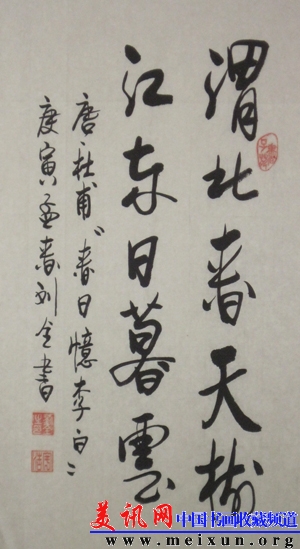 渭北春天樹
江东日暮雲
唐杜甫"春日憶李白"
庚寅孟春刘全書
美讯网 中国书画收藏频道
www.meixun.org